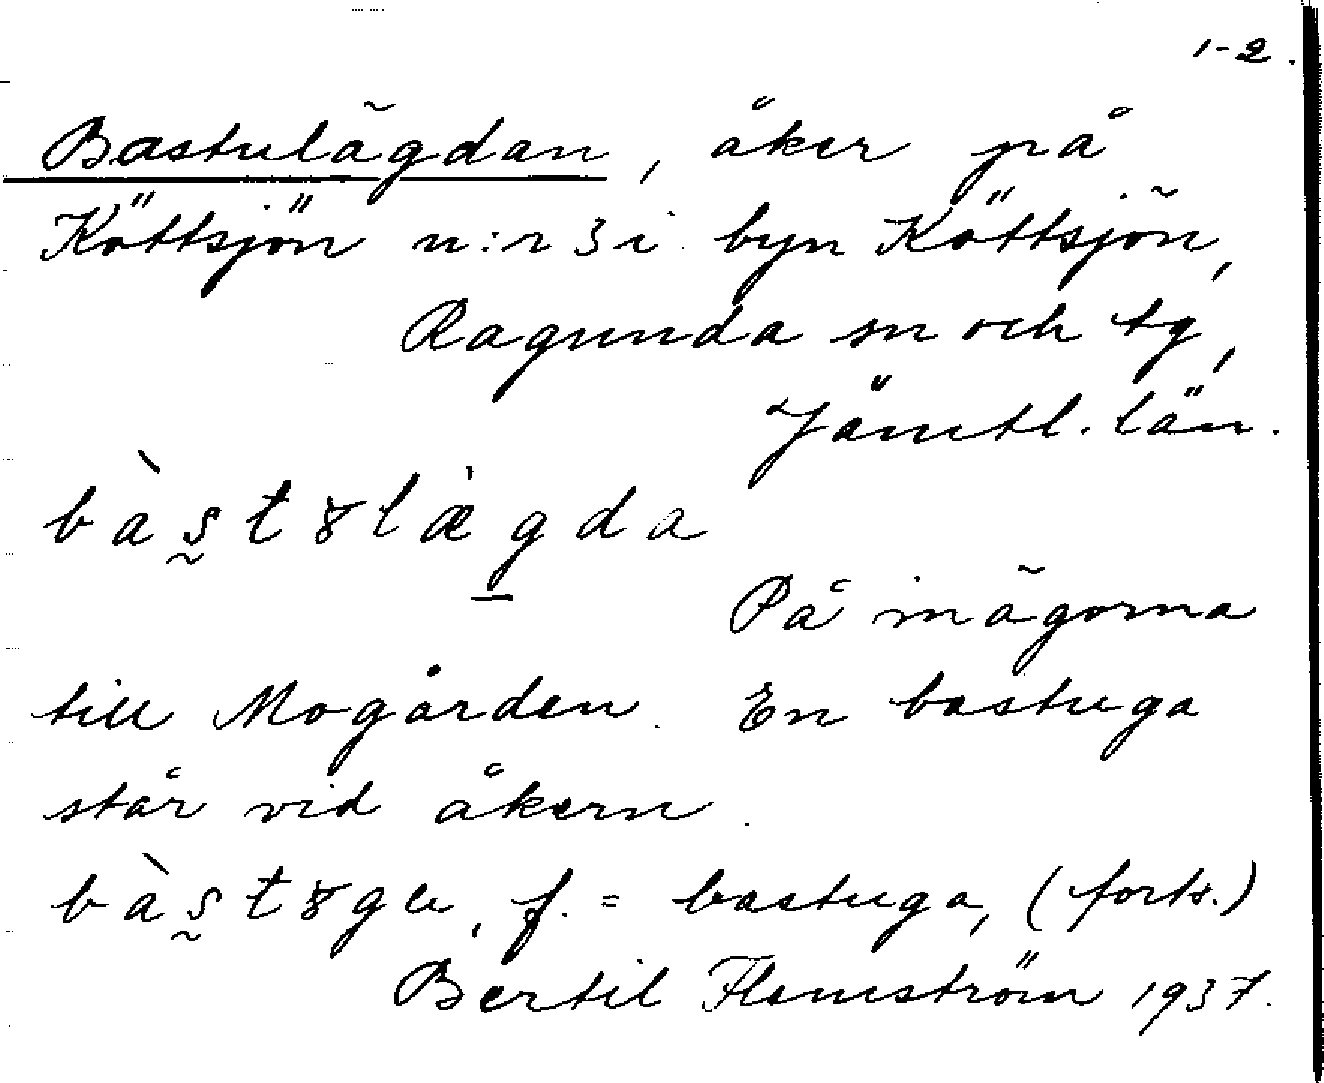 1-2.
Bastulägdan, åker på
Köttsjön n:r 3 i byn Köttsjön,
Ragunda sn och tg,
Jämtl. län.
bàst8læ̀gda
På inägorna
till Mogården. En bastuga
står vid åkern.
f. = bastuga, (forts.)
Bertil Flemström 1937.